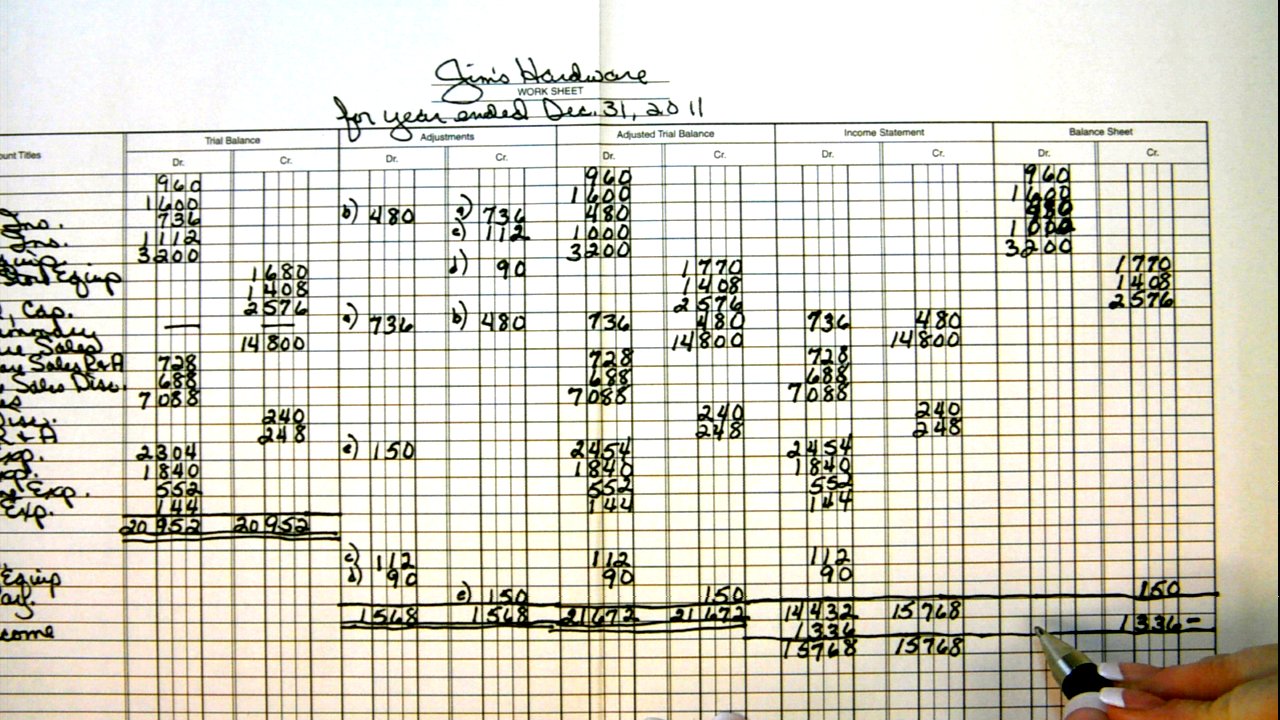 Jim's Hardware
WORK SHEET
for year ended Dec. 31, 2011
Trial Balance Adjustments Adjusted Trial Balance Income Statement Balance Sheet
unt Titles Dr. Cr. Dr. Cr. Dr. Cr. Dr. Cr. Dr. Cr.
960 960 960
1600 1600 1600
Ins. 736 b) 480 a) 736 480 480
Ins. 1112 c) 112 1000 1000
3200 3200 3200
Store Equip 1680 d) 90 1770 1770
1408 1408 1408
, Cap. 2576 2576 2576
— — a) 736 b) 480 736 480 736 480
Sales 14800 14800 14800
Sales R+A 728 728 728
Sales Disc. 688 688 688
7088 7088 7088
Disc. 240 240 240
R + A 248 248 248
Exp. 2304 e) 150 2454 2454
Exp. 1840 1840 1840
Exp. 552 552 552
Exp. 144 144 144
20952 20952
c) 112 112 112
Equip d) 90 90 90
Pay. e) 150 150 150
1568 1568 21672 21672 14432 15768
come 1336 1336-
15768 15768